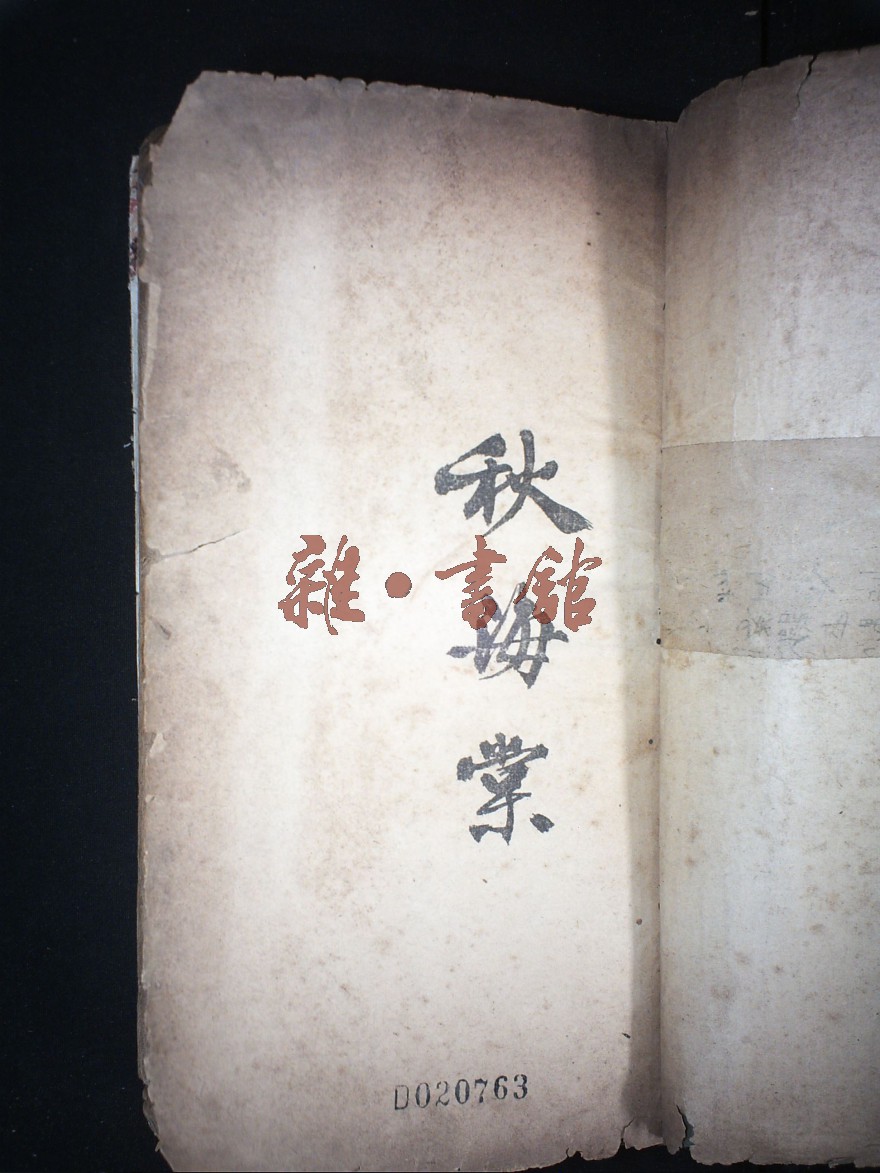 秋海棠
雜·書館
D020763